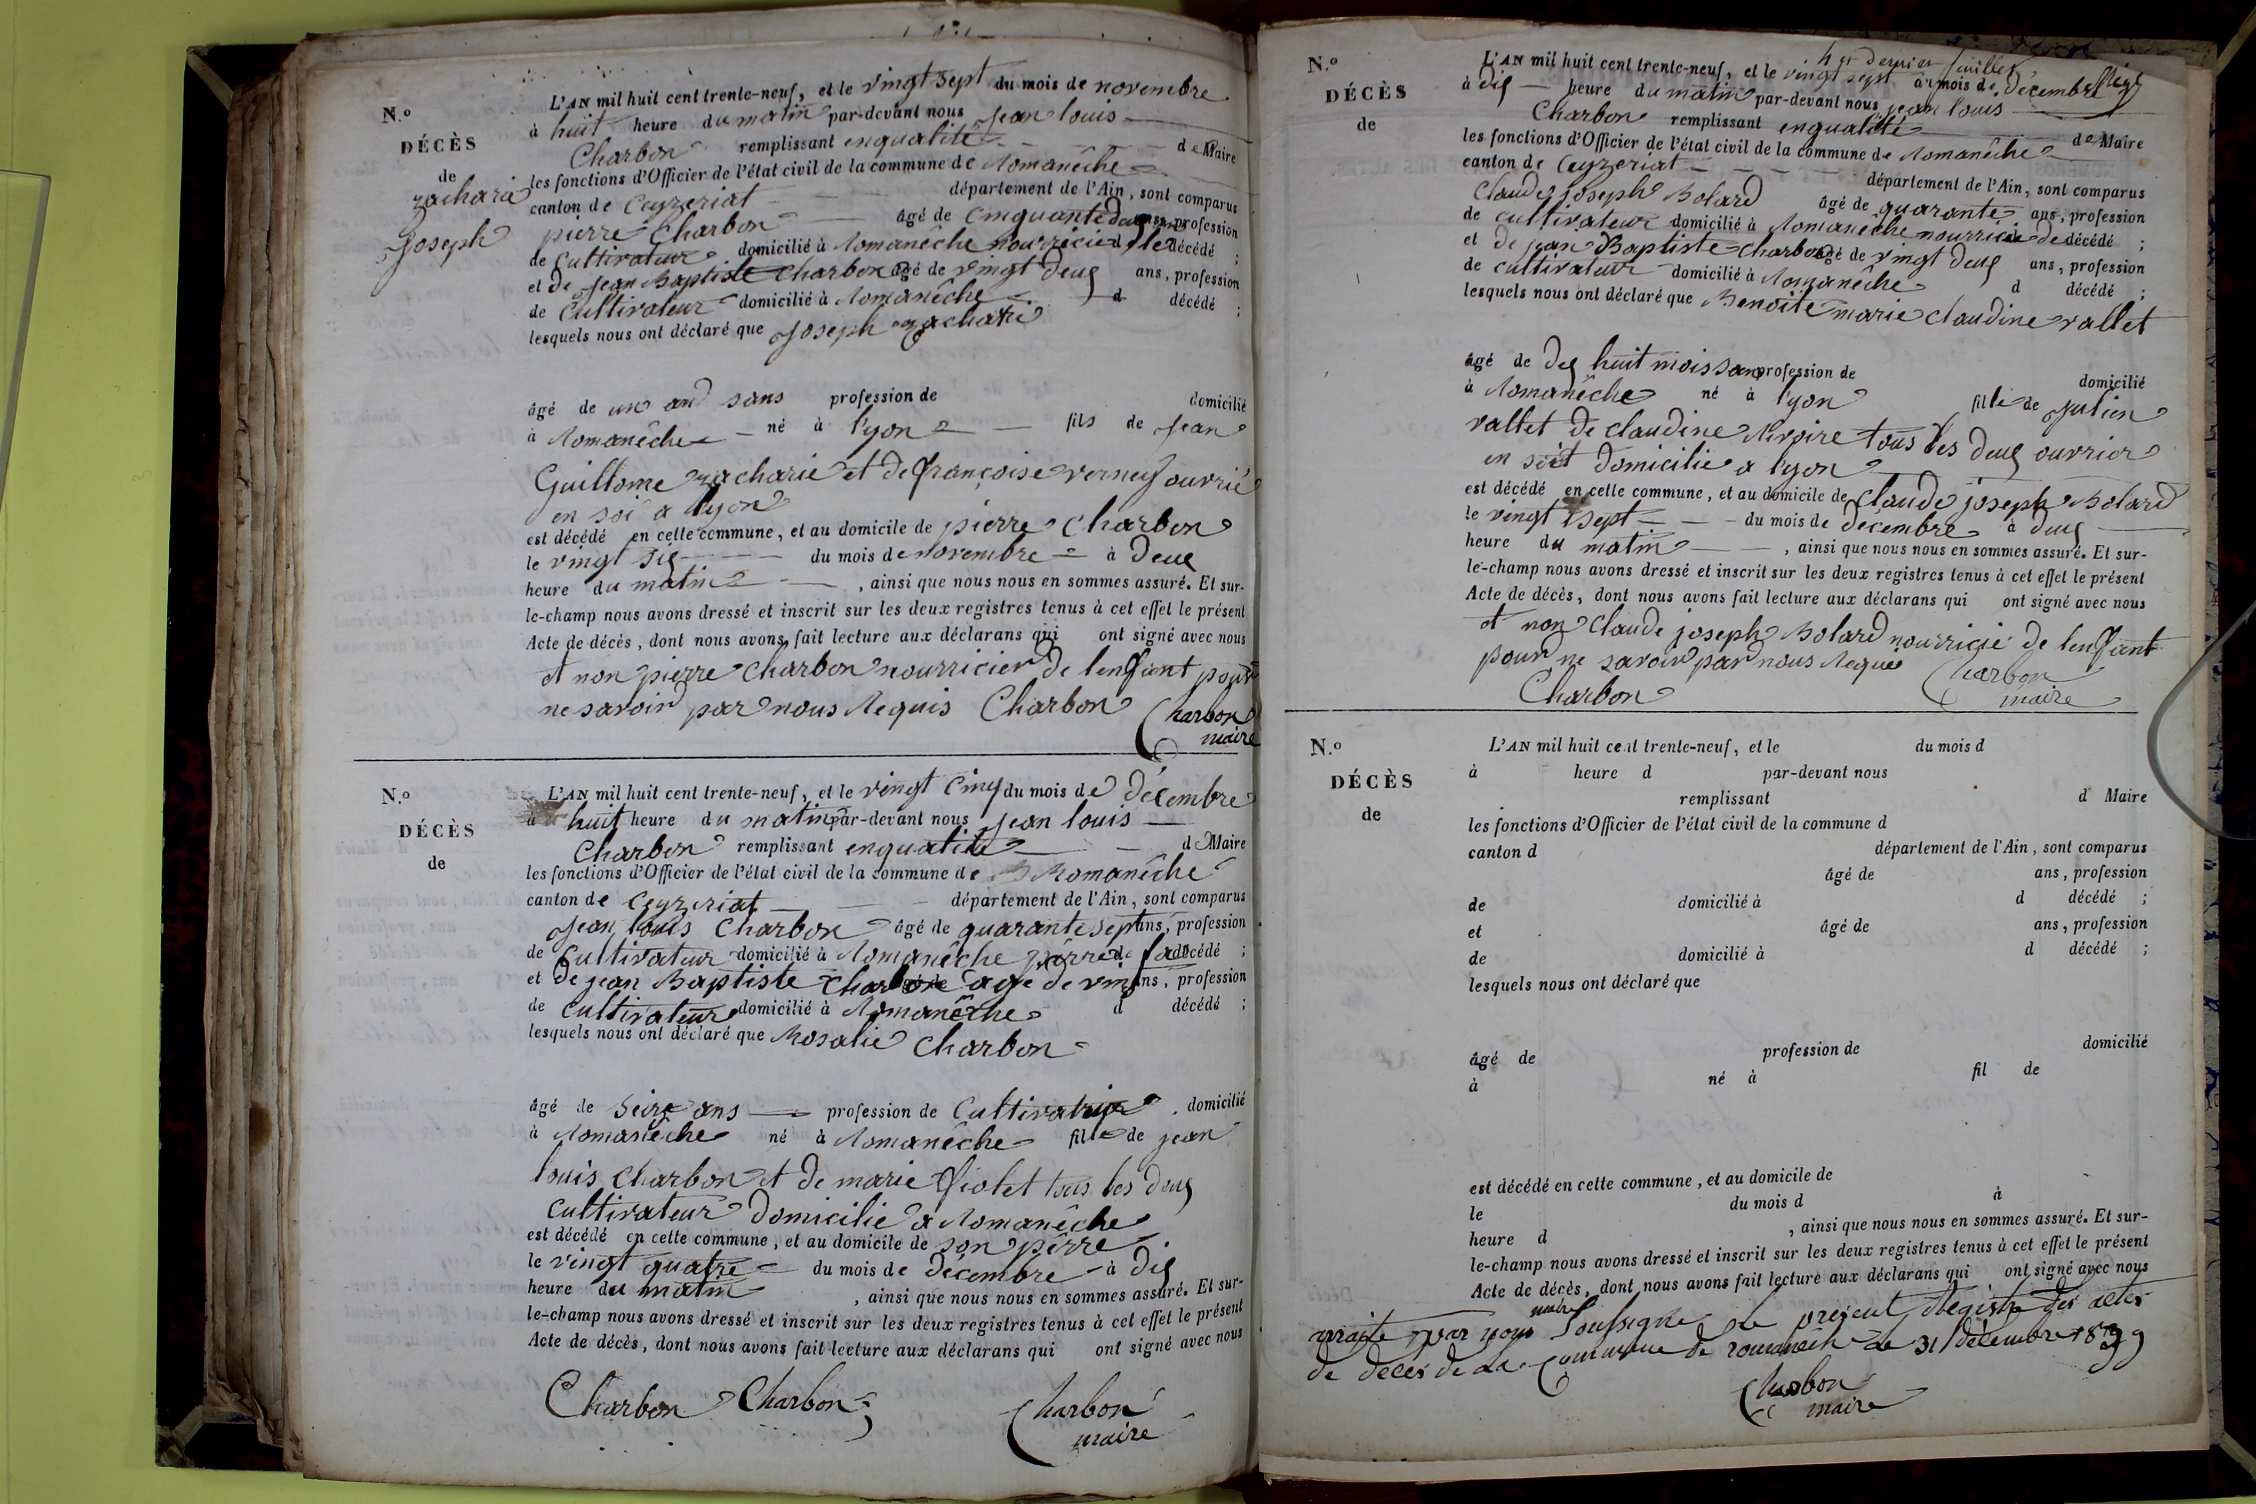 N.º
DÉCÈS
de
zacharie
Joseph
L'AN mil huit cent trente-neuf, et le vingt sept du mois de novembre
à huit heure du matin par-devant nous Jean louis
Charbon remplissant enqualité de Maire
les fonctions d'Officier de l'état civil de la commune de Romanêche
canton de Ceyzeriat département de l'Ain, sont comparus
pierre Charbon âgé de Cinquante deux ans, profession
de Cultivateur domicilié à Romanêche nourricier de décédé ;
et de Jean Baptiste Charbon âgé de vingt deux ans, profession
de Cultivateur domicilié à Romanêche d décédé ;
lesquels nous ont déclaré que Joseph zacharie
âgé de un and sans profession de domicilié
à Romanêche né à lyon fils de Jean
Guillome zacharie et de françoise verneuf ouvrié
en soi a lyon
est décédé en cette commune, et au domicile de pierre Charbon
le vingt six du mois de novembre à Deux
heure du matin , ainsi que nous nous en sommes assuré. Et sur-
le-champ nous avons dressé et inscrit sur les deux registres tenus à cet effet le présent
Acte de décès, dont nous avons fait lecture aux déclarans qui ont signé avec nous
et non pierre Charbon nourricier de lenfant pour
ne savoir par nous Requis Charbon Charbon
maire
N.º
DÉCÈS
de
L'AN mil huit cent trente-neuf, et le vingt Cinq du mois de Décembre
à huit heure du matin par-devant nous Jean louis
Charbon remplissant enqualité de Maire
les fonctions d'Officier de l'état civil de la commune de Romanêche
canton de Ceyzeriat département de l'Ain, sont comparus
Jean louis Charbon âgé de quarante sept ans, profession
de Cultivateur domicilié à Romanêche pêrre de la décédé ;
et de jean Baptiste Charbon agé de vingt ans, profession
de Cultivateur domicilié à Romanêche d décédé ;
lesquels nous ont déclaré que Rosalie Charbon
âgé de Seize ans profession de Cultivatrice domicilié
à Romanêche né à Romanêche fille de jean
louis Charbon et de marie fiolet tous les deux
Cultivateur Domicilié a Romanêche
est décédé en cette commune, et au domicile de son pêrre
le vingt quatre du mois de Décembre à Dix
heure du matin , ainsi que nous nous en sommes assuré. Et sur-
le-champ nous avons dressé et inscrit sur les deux registres tenus à cet effet le présent
Acte de décès, dont nous avons fait lecture aux déclarans qui ont signé avec nous
Charbon Charbon Charbon
maire
N.º
DÉCÈS
de
dernier feuillet
L'AN mil huit cent trente-neuf, et le vingt sept du mois de Décembre
à dix heure du matin par-devant nous jean louis
Charbon remplissant enqualité de Maire
les fonctions d'Officier de l'état civil de la commune de Romanêche
canton de Ceyzeriat département de l'Ain, sont comparus
Claude Joseph Bolard âgé de quarante ans, profession
de Cultivateur domicilié à Romanêche nourricié de décédé ;
et de jean Baptiste Charbon âgé de vingt deux ans, profession
de cultivateur domicilié à Romanêche d décédé ;
lesquels nous ont déclaré que Benoite marie claudine vallet
âgé de dix huit mois sans profession de domicilié
à Romanêche né à lyon fille de Julien
vallet de claudine tous les deux ouvrier
en soit domicilié a lyon
est décédé en cette commune, et au domicile de Claude joseph Bolard
le vingt sept du mois de décembre à deux
heure du matin , ainsi que nous nous en sommes assuré. Et sur-
le-champ nous avons dressé et inscrit sur les deux registres tenus à cet effet le présent
Acte de décès, dont nous avons fait lecture aux déclarans qui ont signé avec nous
et non Claude joseph Bolard nourricié de lenfant
pour ne savoir par nous Requis Charbon
Charbon maire
N.º
DÉCÈS
de
L'AN mil huit cent trente-neuf, et le du mois d
à heure d par-devant nous
remplissant d Maire
les fonctions d'Officier de l'état civil de la commune d
canton d département de l'Ain, sont comparus
âgé de ans, profession
de domicilié à d décédé ;
et âgé de ans, profession
de domicilié à d décédé ;
lesquels nous ont déclaré que
âgé de profession de domicilié
à né à fil de
est décédé en cette commune, et au domicile de
le du mois d à
heure d , ainsi que nous nous en sommes assuré. Et sur-
le-champ nous avons dressé et inscrit sur les deux registres tenus à cet effet le présent
Acte de décès, dont nous avons fait lecture aux déclarans qui ont signé avec nous
par nous maire Soussigné le présent Registre des actes
de décès de la Commune de romanèche le 31 décembre 1839
Charbon
maire